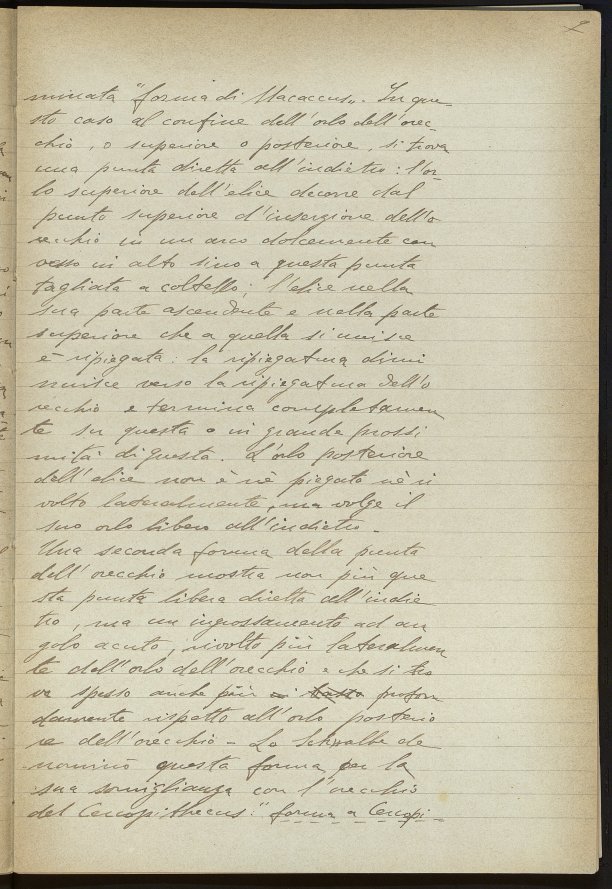 2
minata "forma di Macaccus". In que-
sto caso al confine dell'orlo dell'orec-
chio, o superiore o posteriore, si trova
una punta diretta all'indietro: l'or-
lo superiore dell'elice decorre dal
punto superiore d'inserzione dell'o
recchio in un arco dolcemente con
vesso in alto sino a questa punta
tagliata a coltello; l'elice nella
sua parte ascendente e nella parte
superiore che a quella si unisce
è ripiegata: la ripiegatura dimi
nuisce verso la ripiegatura dell'o
recchio e termina completamen
te su questa o in grande prossi
mità di questa. L'orlo posteriore
dell'elice non è nè piegato nè ri
volto lateralmente, ma volge il
suo orlo libero all'indietro.
Una seconda forma della punta
dell'orecchio mostra non più que
sta punta libera diretta all'indie
tro, ma un ingrossamento ad an
golo acuto, rivolto più lateralmen
te dell'orlo dell'orecchio e che si tro
va spesso anche più profon
damente rispetto all'orlo posterio
re dell'orecchio - Lo Schwalbe de
nominò questa forma per la
sua somiglianza con l'orecchio
del Cercopithecus: "forma a Cercopi-